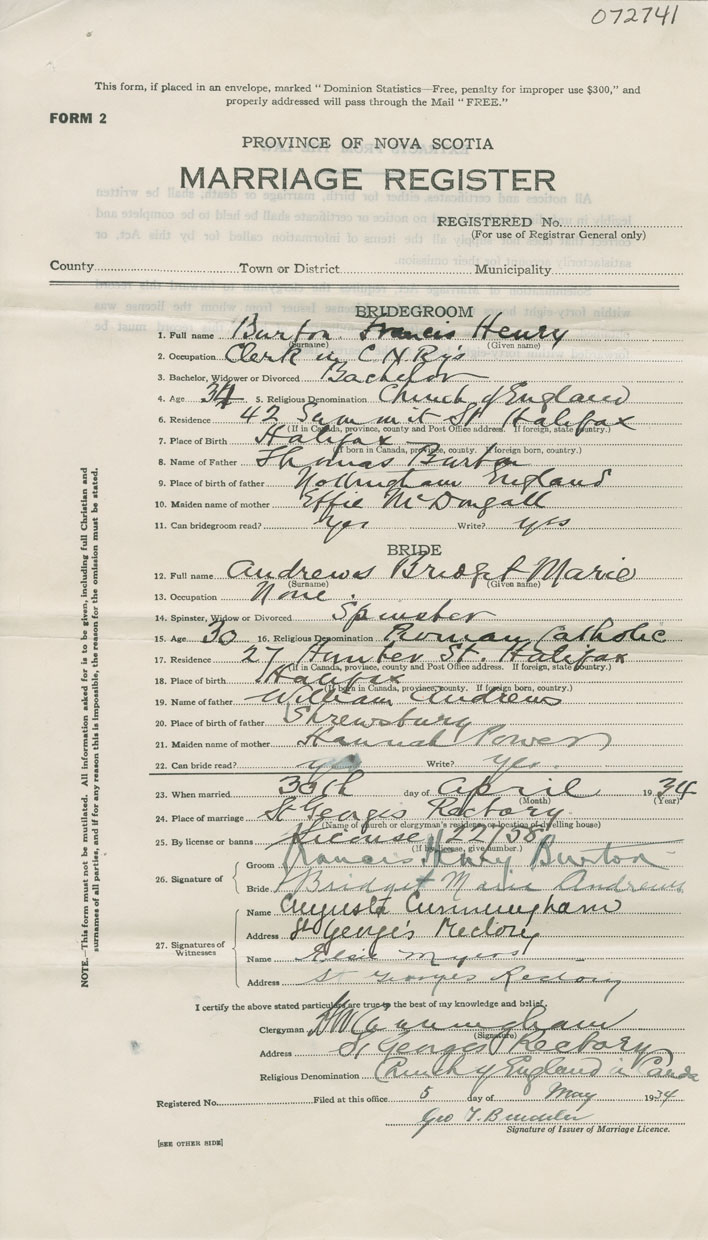 072741
This form, if placed in an envelope, marked "Dominion Statistics—Free, penalty for improper use $300," and
properly addressed will pass through the Mail "FREE."
FORM 2
PROVINCE OF NOVA SCOTIA
MARRIAGE REGISTER
REGISTERED No.
(For use of Registrar General only)
County Town or District Municipality
BRIDEGROOM
1. Full name Burton Francis Henry
(Surname) (Given name)
2. Occupation Clerk in C.N.Ry's
3. Bachelor, Widower or Divorced Bachelor
4. Age 34 5. Religious Denomination Church of England
6. Residence 42 Summit St Halifax
(If in Canada, province, county and Post Office address. If foreign, state country.)
7. Place of Birth Halifax
(If born in Canada, province, county. If foreign born, country.)
8. Name of Father Thomas Burton
9. Place of birth of father Nottingham England
10. Maiden name of mother Effie McDougall
11. Can bridegroom read? Yes Write? yes
BRIDE
12. Full name Andrews Bridget Marie
(Surname) (Given name)
13. Occupation None.
14. Spinster, Widow or Divorced Spinster
15. Age 30 16. Religious Denomination Roman Catholic
17. Residence 27 Hunter St. Halifax
(If in Canada, province, county and Post Office address. If foreign, state country.)
18. Place of birth Halifax
(If born in Canada, province, county. If foreign born, country.)
19. Name of father William Andrews
20. Place of birth of father Shrewsbury
21. Maiden name of mother Hannah Power
22. Can bride read? yes Write? yes.
23. When married 30th day of April 1934
(Month) (Year)
24. Place of marriage St Georges Rectory
(Name of church or clergyman's residence or location of dwelling house)
25. By license or banns License 122/58
(If by license, give number)
26. Signature of
Groom Francis Henry Burton
Bride Bridget Marie Andrews
27. Signatures of Witnesses
Name Augusta Cunningham
Address St George's Rectory
Name Elsie Myers
Address St Georges Rectory
I certify the above stated particulars are true to the best of my knowledge and belief.
Clergyman Cunningham
(Signature)
Address St Georges Rectory
Religious Denomination Church of England in Canada
Registered No. Filed at this office 5 day of May 1934
Geo T.
Signature of Issuer of Marriage Licence.
[SEE OTHER SIDE]
NOTE.—This form must not be mutilated. All information asked for is to be given, including full Christian and
surnames of all parties, and if for any reason this is impossible, the reason for the omission must be stated.